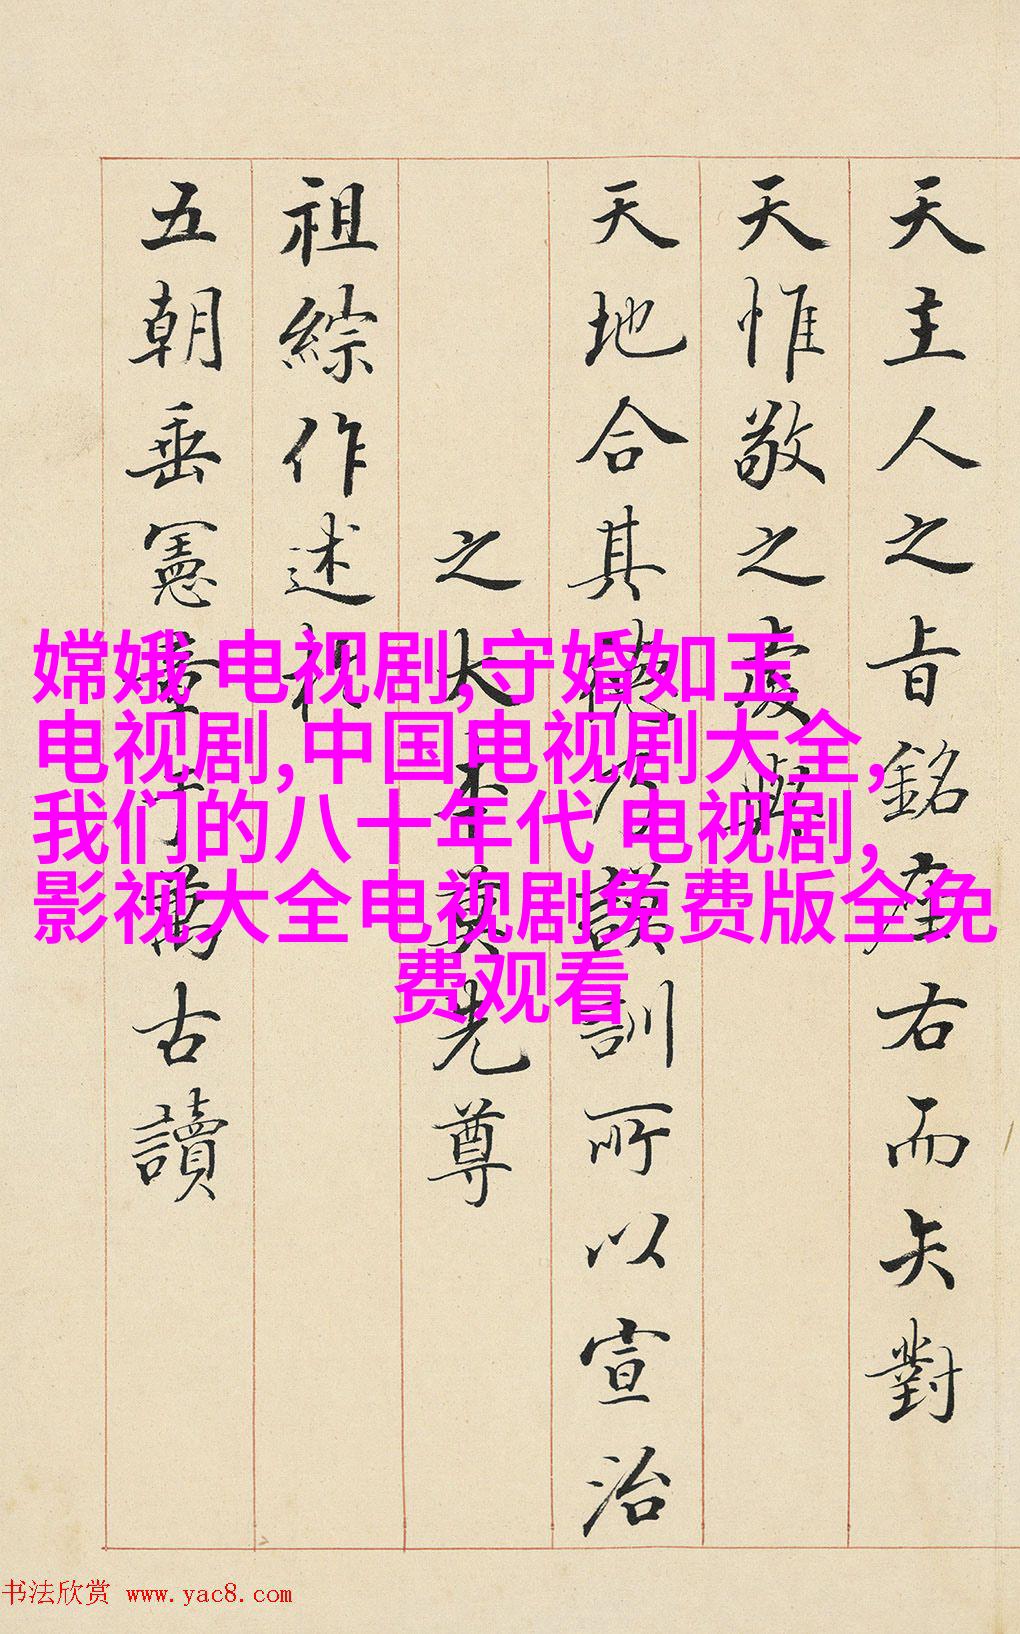 天主人之旨銘座右而矢對
天惟敬之虔與
天地合其德乃謨訓所以宣治
之大本奠先尊
祖綜作述於
五朝垂憲章于萬古讀
嫦娥 电视剧,守婚如玉
电视剧,中国电视剧大全,
我们的八十年代 电视剧,
影视大全电视剧免费版全免
费观看
书法欣赏 www.yac8.com